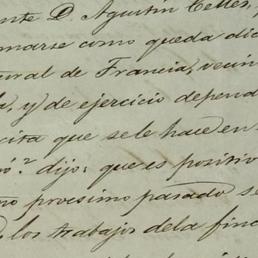 nte D. Agustin Telles,
marse como queda dic
ural de Francia, vecin
a, y de ejercicio depend
cita que se le hace en
ó.? dijo: que es pozitivo
no procsimo pasado se
los trabajos dela finc